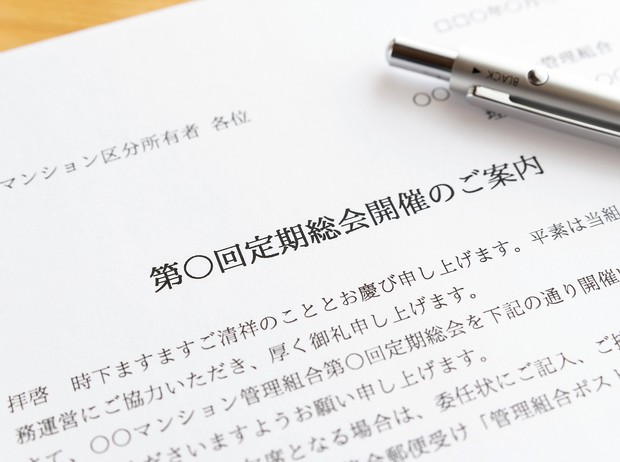 □□○年○月
管理組合
○○
BLACK
マンション区分所有者 各位
第〇回定期総会開催のご案内
拝啓 時下ますますご清祥のこととお慶び申し上げます。平素は当組
務運営にご協力いただき、厚く御礼申し上げます。
て、〇〇マンション管理組合第〇回定期総会を下記の通り開催
くださいますようお願い申し上げます。
欠席となる場合は、委任状にご記入、ご
郵便受け「管理組合ポスト